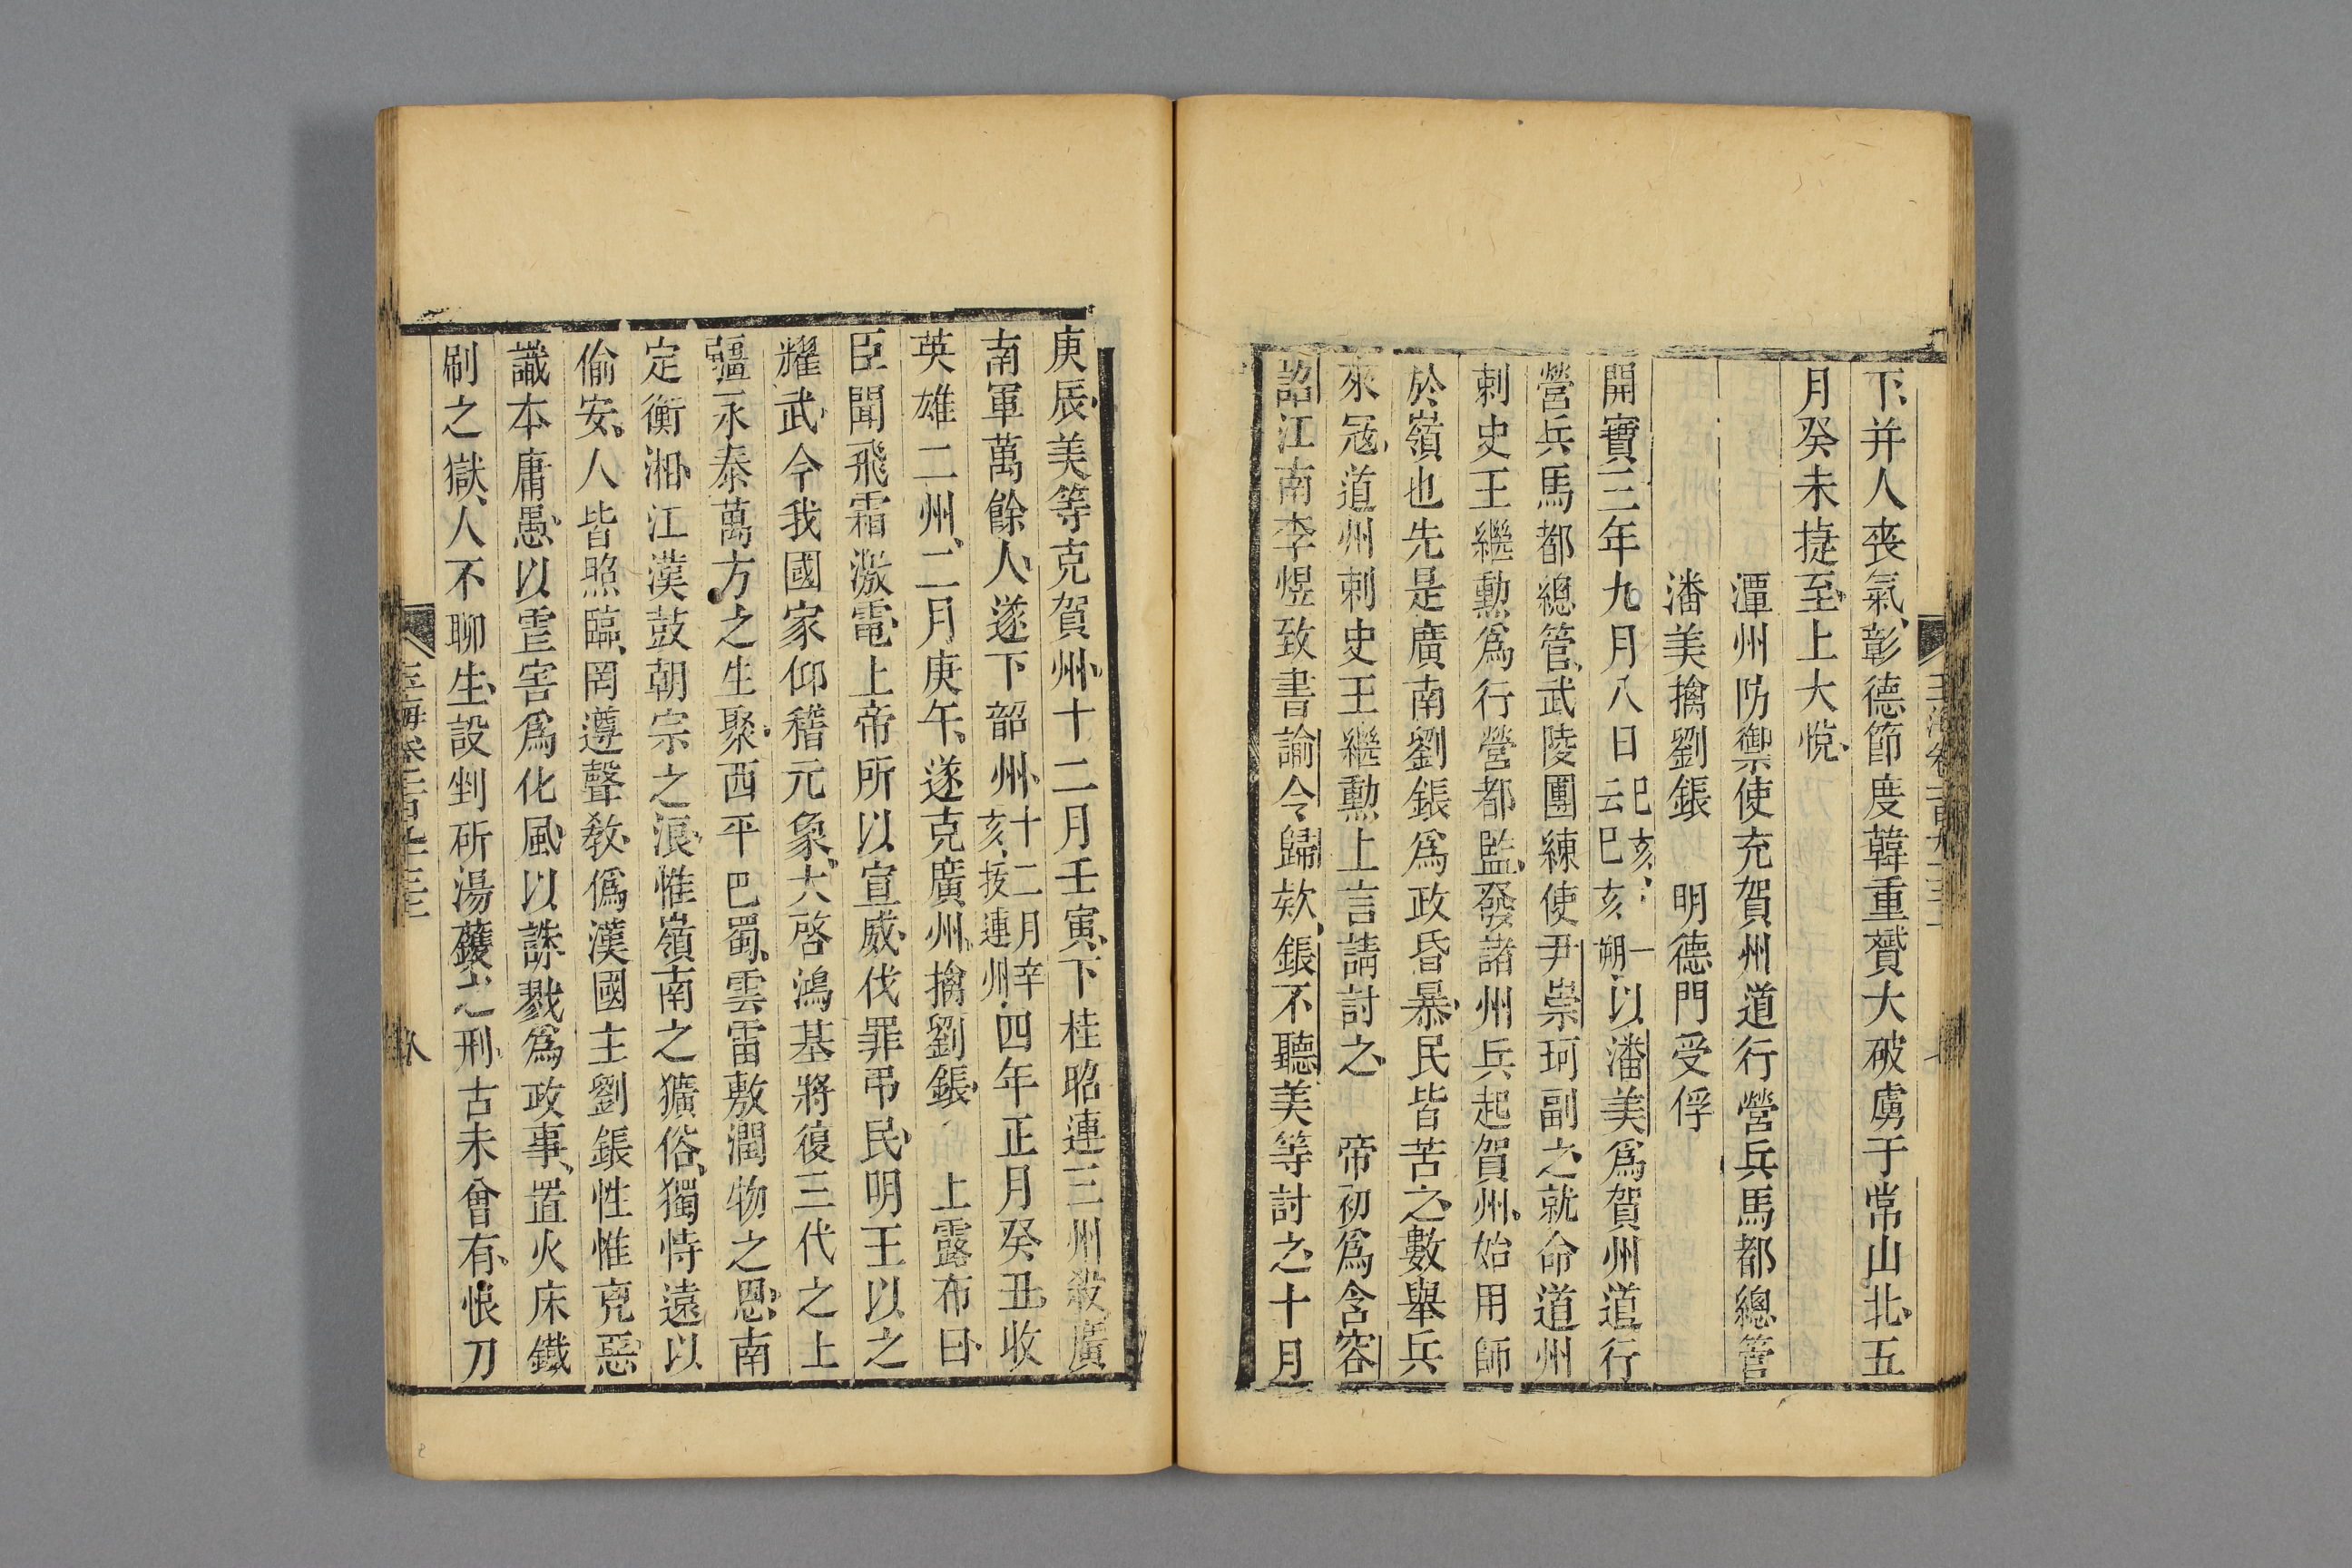 下并人喪氣彰德節度韓重贇大破虜于常山北五
月癸未捷至上大悅
潭州防禦使充賀州道行營兵馬都總管
潘美擒劉鋹　明德門受俘
開寶三年九月八日己亥一云巳亥朔以潘美爲賀州道行
營兵馬都總管武陵團練使尹崇珂副之就命道州
刺史王繼勳爲行營都監發諸州兵起賀州始用師
於嶺也先是廣南劉鋹爲政昏暴民皆苦之數舉兵
來寇道州刺史王繼勳上言請討之　帝初爲含容
詔江南李煜致書諭令歸欵鋹不聽美等討之十月
庚辰美等克賀州十二月壬寅下桂昭連三州殺廣
南軍萬餘人遂下韶州十二月辛亥拔連州四年正月癸丑收
英雄二州二月庚午遂克廣州擒劉鋹　上露布曰
臣聞飛霜激電上帝所以宣威伐罪弔民明王以之
耀武今我國家仰稽元象大啓鴻基將復三代之上
疆永泰萬方之生聚西平巴蜀雲雷敷潤物之恩南
定衡湘江漢鼓朝宗之浪惟嶺南之獷俗獨恃遠以
偷安人皆照臨罔遵聲敎僞漢國主劉鋹性惟兇惡
識本庸愚以虐害爲化風以誅戮爲政事置火床鐵
刷之獄人不聊生設剉斫湯鑊之刑古未曾有恨刀